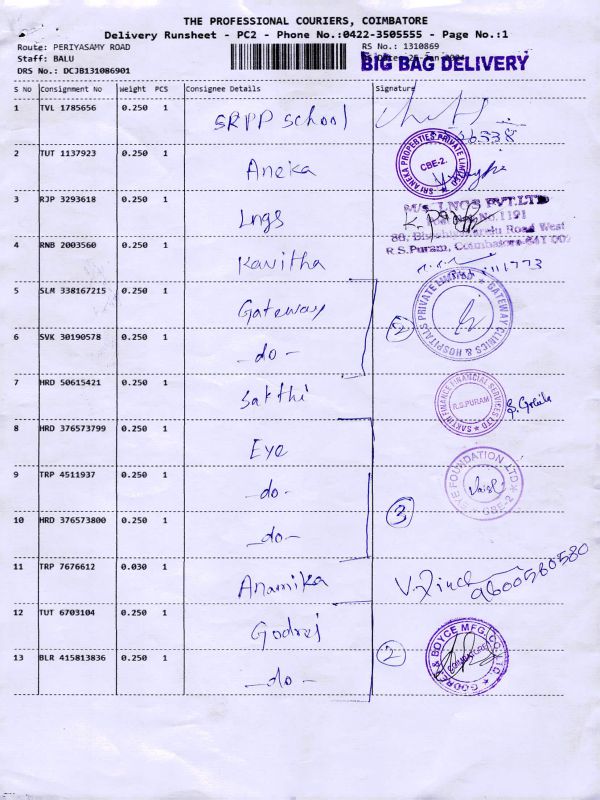 THE PROFESSIONAL COURIERS, COIMBATORE
Delivery Runsheet - PC2 - Phone No.:0422-3505555 - Page No.:1
Route: PERIYASAMY ROAD
RS No.: 1310869
Staff: BALU
BIG BAG DELIVERY
DRS No.: DCJB131086901
S No Consignment No Weight PCS Consignee Details Signature
1 TVL 1785656 0.250 1 SRPP School
26538
2 TUT 1137923 0.250 1 Aneka
SRI ANEKA PROPERTIES PRIVATE LIMITED
CBE-2.
3 RJP 3293618 0.250 1 Lngs
M/s. LNGS PVT.LTD
No.1191
Road West
R.S.Puram, Coimbatore-641 002
4 RNB 2003560 0.250 1 Kavitha
5 SLM 338167215 0.250 1 Gateway
2
GATEWAY CLINICS & HOSPITALS PRIVATE LIMITED
6 SVK 30190578 0.250 1 -do-
7 HRD 50615421 0.250 1 Sakthi
SAKTHI FINANCE FINANCIAL SERVICES LTD
R.S.PURAM
8 HRD 376573799 0.250 1 Eye
9 TRP 4511937 0.250 1 -do-
EYE FOUNDATION LTD
CBE-2
10 HRD 376573800 0.250 1 -do-
3
11 TRP 7676612 0.030 1 Anamika
9600580580
12 TUT 6703104 0.250 1 Godrej
13 BLR 415813836 0.250 1 -do-
2
GODREJ & BOYCE MFG.CO.LTD.
COIMBATORE